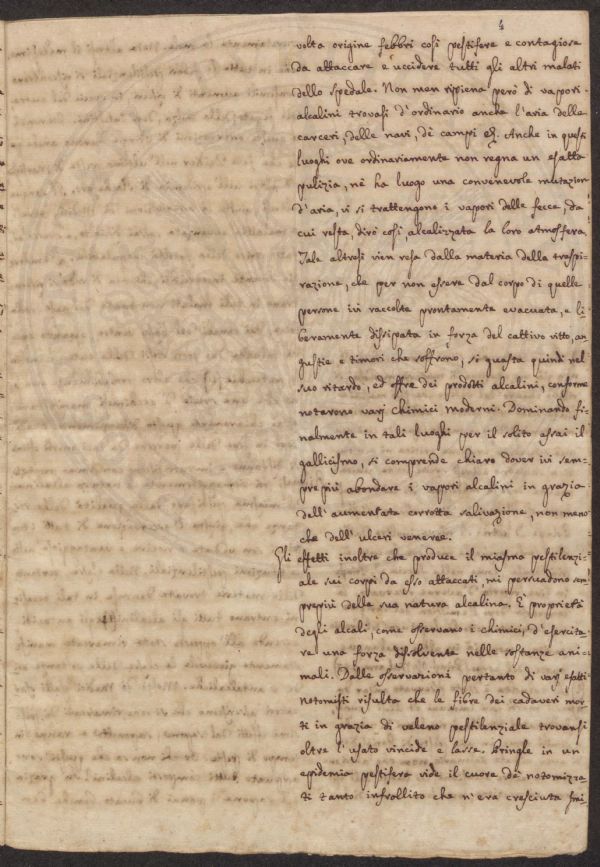 4
volta origine febbri così pestifere e contagiose
da attaccare e uccidere tutti gli altri malati
dello spedale. Non men ripiena però di vapori
alcalini trovasi d'ordinario anche l'aria delle
carceri, delle navi, de campi &. Anche in questi
luoghi ove ordinariamente non regna un esatta
pulizia, nè ha luogo una convenevole mutazion
d'aria, vi si trattengono i vapori delle fecce, da
cui resta, dirò così, alcalizzata la loro atmosfera.
Tale altresì vien resa dalla materia della traspi-
razione, che per non essere dal corpo di quelle
persone ivi raccolte prontamente evacuata, e li
beramente dissipata in forza del cattivo vitto, an
gustie e timori che soffrono, si guasta quindi nel
suo ritardo, ed offre dei prodotti alcalini, conforme
notarono varj chimici moderni. Dominando fi-
nalmente in tali luoghi per il solito assai il
gallicismo, si comprende chiaro dover ivi sem-
prepiù abondare i vapori alcalini in grazia
dell'aumentata corrotta salivazione, non meno
che dell'ulceri veneree.
Gli effetti inoltre che produce il miasma pestilenzi-
ale sui corpi da esso attaccati, mi persuadono sem
prepiù della sua natura alcalina. È proprietà
degli alcali, come osservano i chimici, d'esercita-
re una forza dissolvente nelle sostanze ani-
mali. Dalle osservazioni pertanto di varj esatti
notomisti risulta che le fibre dei cadaveri mor-
ti in grazia di veleno pestilenziale trovansi
oltre l'usato vincide e lasse. Pringle in un
epidemia pestifera vide il cuore de notomizza
ti tanto infrollito che n'era cresciuta smi-